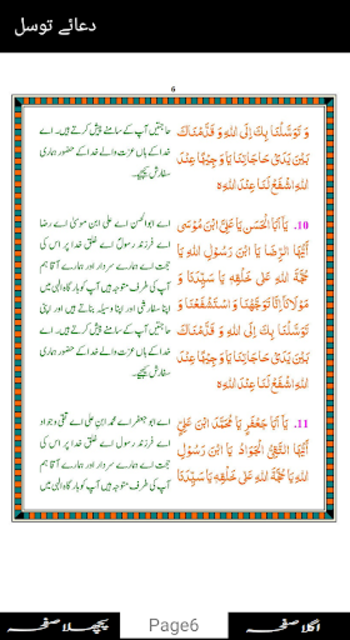 دعائے توسل
6
وَ تَوَسَّلْنَا بِكَ اِلَى اللهِ وَ قَدَّمْنَاكَ
بَيْنَ يَدَىْ حَاجَاتِنَا يَا وَجِيْهًا عِنْدَ
اللهِ اشْفَعْ لَنَا عِنْدَ اللهِ
حاجتیں آپ کے سامنے پیش کرتے ہیں۔ اے
خدا کے ہاں عزت والے خدا کے حضور ہماری
سفارش کیجیے۔
10. يَا اَبَا الْحَسَنِ يَا عَلِىَّ ابْنَ مُوْسٰى
اَيُّهَا الرِّضَا يَا ابْنَ رَسُوْلِ اللهِ يَا
حُجَّةَ اللهِ عَلٰى خَلْقِهٖ يَا سَيِّدَنَا وَ
مَوْلَانَا اِنَّا تَوَجَّهْنَا وَ اسْتَشْفَعْنَا وَ
تَوَسَّلْنَا بِكَ اِلَى اللهِ وَ قَدَّمْنَاكَ
بَيْنَ يَدَىْ حَاجَاتِنَا يَا وَجِيْهًا عِنْدَ
اللهِ اشْفَعْ لَنَا عِنْدَ اللهِ
اے ابوالحسن اے علی ابن موسیٰ اے رضا
اے فرزند رسول اے خلق خدا پر اس کی
حجت اے ہمارے سردار اور ہمارے آقا ہم
آپ کی طرف متوجہ ہیں آپ کو بارگاہ الٰہی میں
اپنا سفارشی اور اپنا وسیلہ بناتے ہیں اور اپنی
حاجتیں آپ کے سامنے پیش کرتے ہیں۔ اے
خدا کے ہاں عزت والے خدا کے حضور ہماری
سفارش کیجیے۔
11. يَا اَبَا جَعْفَرٍ يَا مُحَمَّدَ ابْنَ عَلِىٍّ
اَيُّهَا التَّقِىُّ الْجَوَادُ يَا ابْنَ رَسُوْلِ
اللهِ يَا حُجَّةَ اللهِ عَلٰى خَلْقِهٖ يَا سَيِّدَنَا
اے ابو جعفر اے محمد ابن علی اے تقی و جواد
اے فرزند رسول اے خلق خدا پر اس کی
حجت اے ہمارے سردار اور ہمارے آقا ہم
آپ کی طرف متوجہ ہیں آپ کو بارگاہ الٰہی میں
اگلا صفحہ
Page6
پچھلا صفحہ